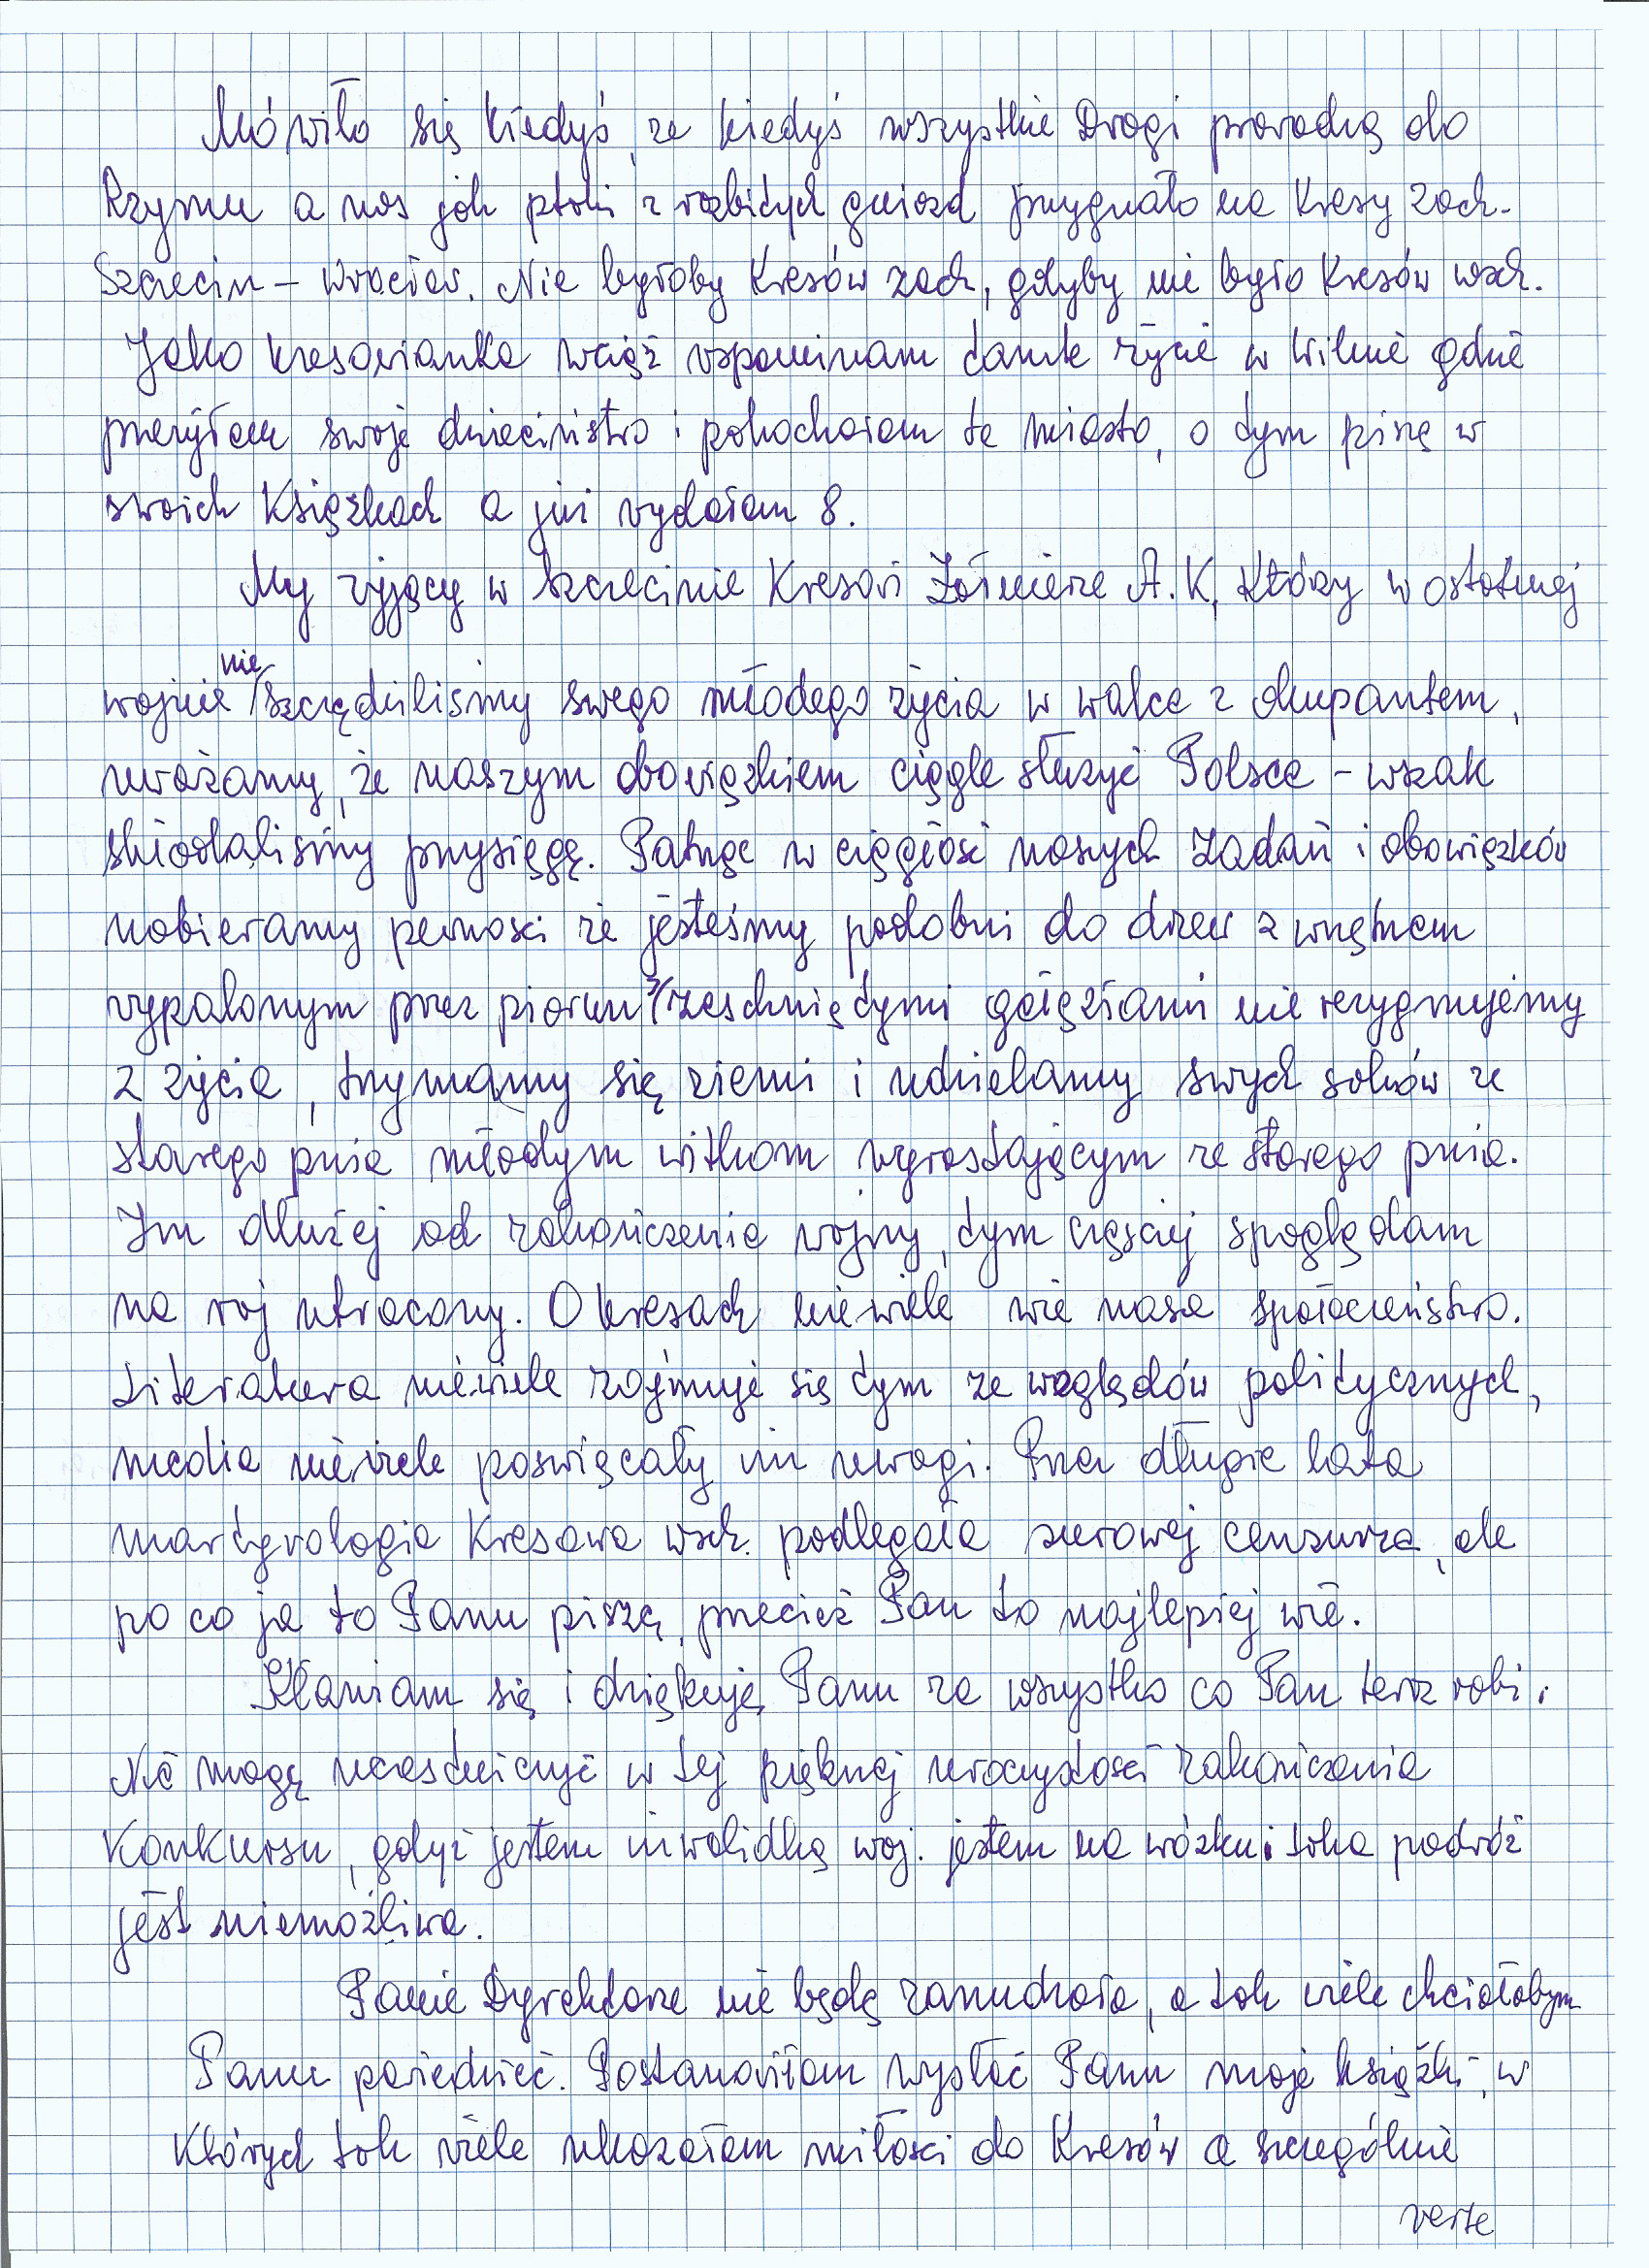 Mówiło się kiedyś, że kiedyś wszystkie Drogi prowadzą do
Rzymu a nas jak ptaki z rozbitych gniazd przygnało na Kresy Zach.
Szczecin – Wrocław. Nie byłoby Kresów Zach, gdyby nie było Kresów wsch.
Jako kresowianka wciąż wspominam tamte życie w Wilnie gdzie
przeżyłam swoje dzieciństwo i pokochałam te miasto, o tym piszę w
swoich Książkach a już wydałam 8.
My żyjący w Szczecinie Kresowi Żołnierze A.K, Którzy w ostatniej
wojnie nie szczędziliśmy swego młodego życia w walce z okupantem,
uważamy, że naszym obowiązkiem ciągle służyć Polsce – wszak
składaliśmy przysięgę. Patrząc w ciągłość naszych zadań i obowiązków
nabieramy pewności że jesteśmy podobni do drzew z wnętrzem
wypalonym przez piorun z zeschniętymi gałęziami nie rezygnujemy
z życia, trzymamy się ziemi i udzielamy swych soków ze
starego pnia młodym witkom wyrastającym ze starego pnia.
Im dłużej od zakończenia wojny, tym częściej spoglądam
na raj utracony. O kresach niewiele wie nasze społeczeństwo.
Literatura niewiele zajmuje się tym ze względów politycznych,
media niewiele poświęcały im uwagi. Przez długie lata
martyrologia Kresowa wsch. podlegała surowej cenzurze, ale
po co ja to Panu piszę, przecież Pan to najlepiej wie.
Kłaniam się i dziękuję Panu za wszystko co Pan teraz robi.
Nie mogę uczestniczyć w tej pięknej uroczystości zakończenia
Konkursu, gdyż jestem inwalidką woj. jestem na wózku i taka podróż
jest niemożliwa.
Panie Dyrektorze nie będę zanudzała, a tak wiele chciałabym
Panu powiedzieć. Postanowiłam wysłać Panu moje książki, w
Których tak wiele ukazałam miłości do Kresów a szczególnie
verte